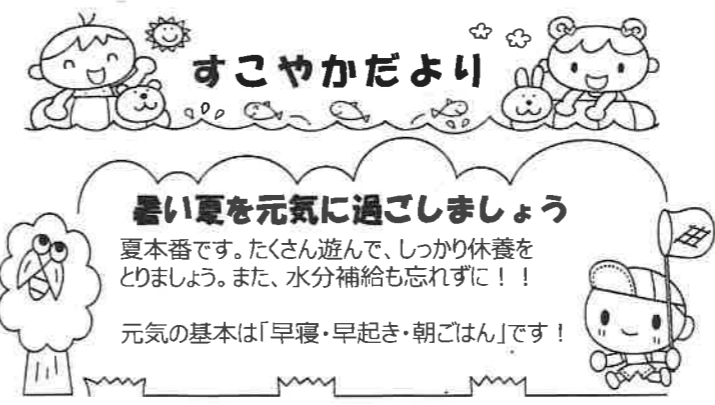 すこやかだより
暑い夏を元気に過ごしましょう
夏本番です。たくさん遊んで、しっかり休養を
とりましょう。また、水分補給も忘れずに！！
元気の基本は「早寝・早起き・朝ごはん」です！